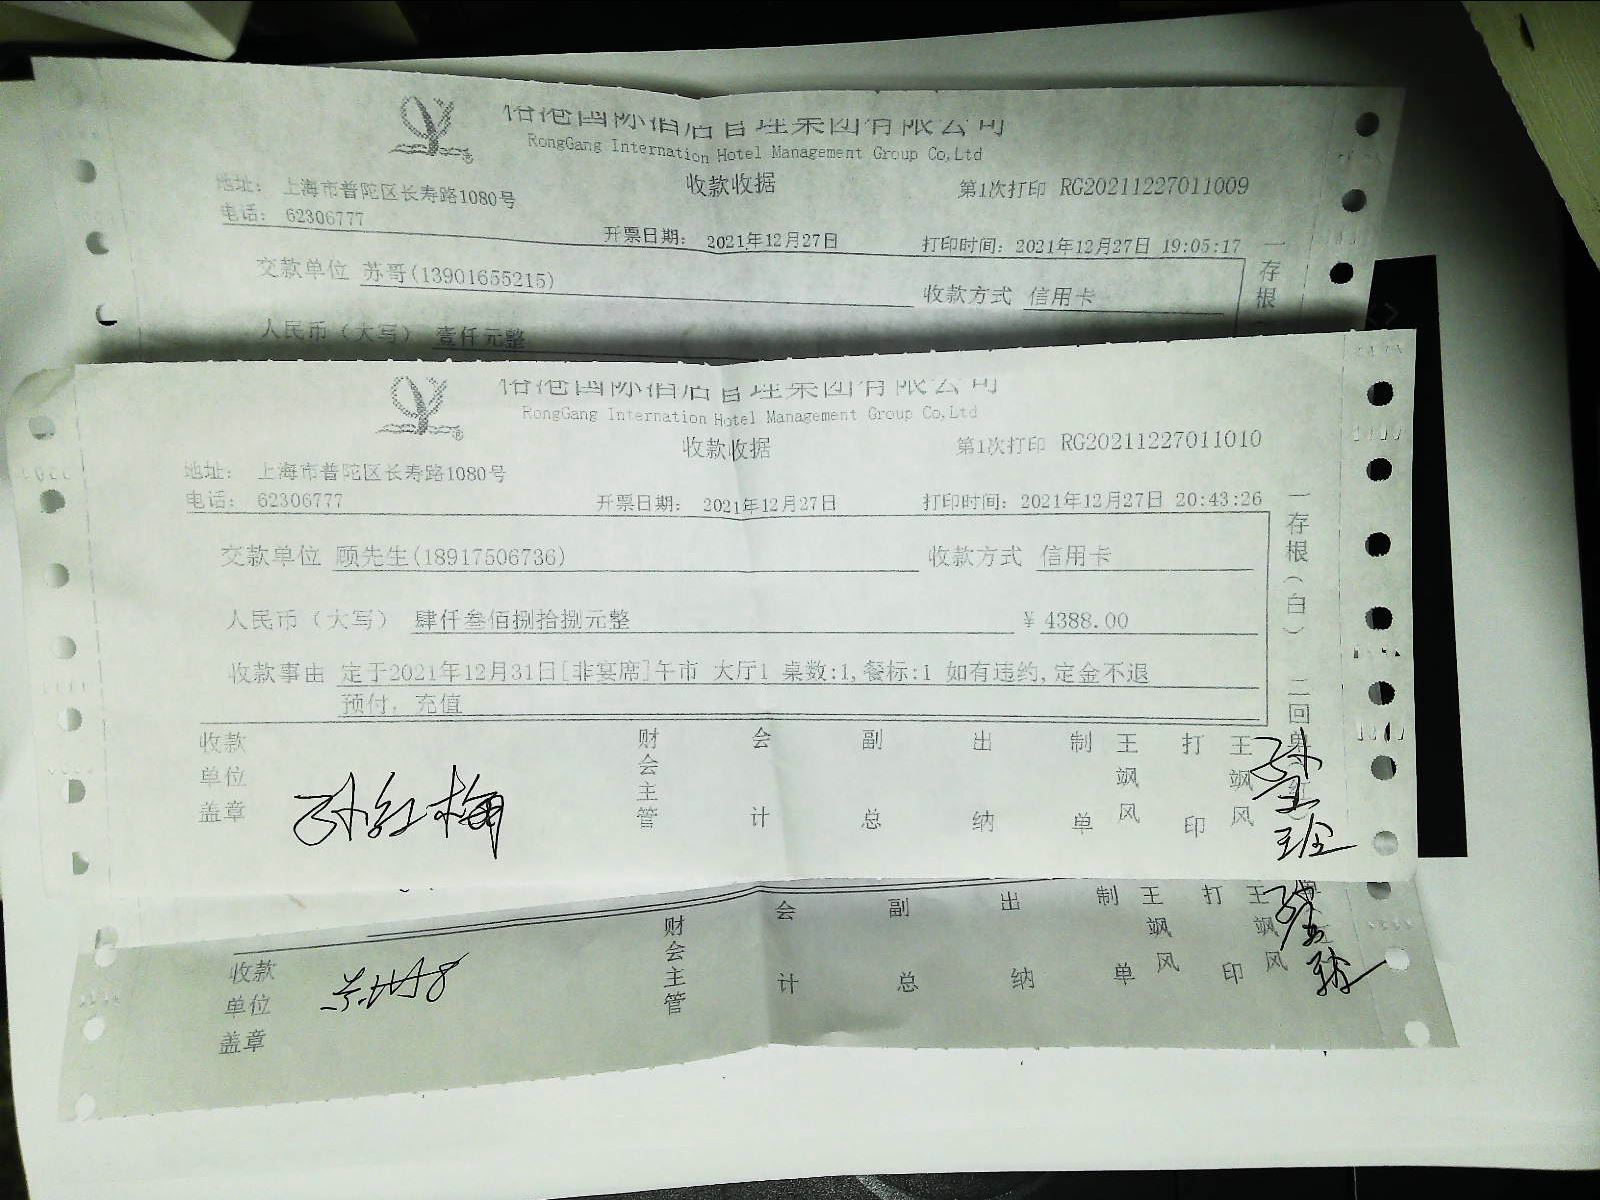 国际酒店管理集团有限公司
RongGang Internation Hotel Management Group Co,Ltd
收款收据
第1次打印 RG20211227011009
地址： 上海市普陀区长寿路1080号
电话： 62306777
开票日期： 2021年12月27日
打印时间：2021年12月27日 19:05:17
交款单位 苏哥(13901655215)
收款方式 信用卡
人民币（大写） 壹仟元整
一存根
国际酒店管理集团有限公司
RongGang Internation Hotel Management Group Co,Ltd
收款收据
第1次打印 RG20211227011010
地址： 上海市普陀区长寿路1080号
电话： 62306777
开票日期： 2021年12月27日
打印时间：2021年12月27日 20:43:26
交款单位 顾先生(18917506736)
收款方式 信用卡
人民币（大写） 肆仟叁佰捌拾捌元整
¥ 4388.00
收款事由 定于2021年12月31日[非宴席]午市 大厅1 桌数:1,餐标:1 如有违约,定金不退
预付，充值
一存根(白) 二回单(红)
收款单位盖章
孙红梅
财会主管 会计 副总 出纳 制单 王飒风 打印 王飒风
收款单位盖章
财会主管 会计 副总 出纳 制单 王飒风 打印 王飒风